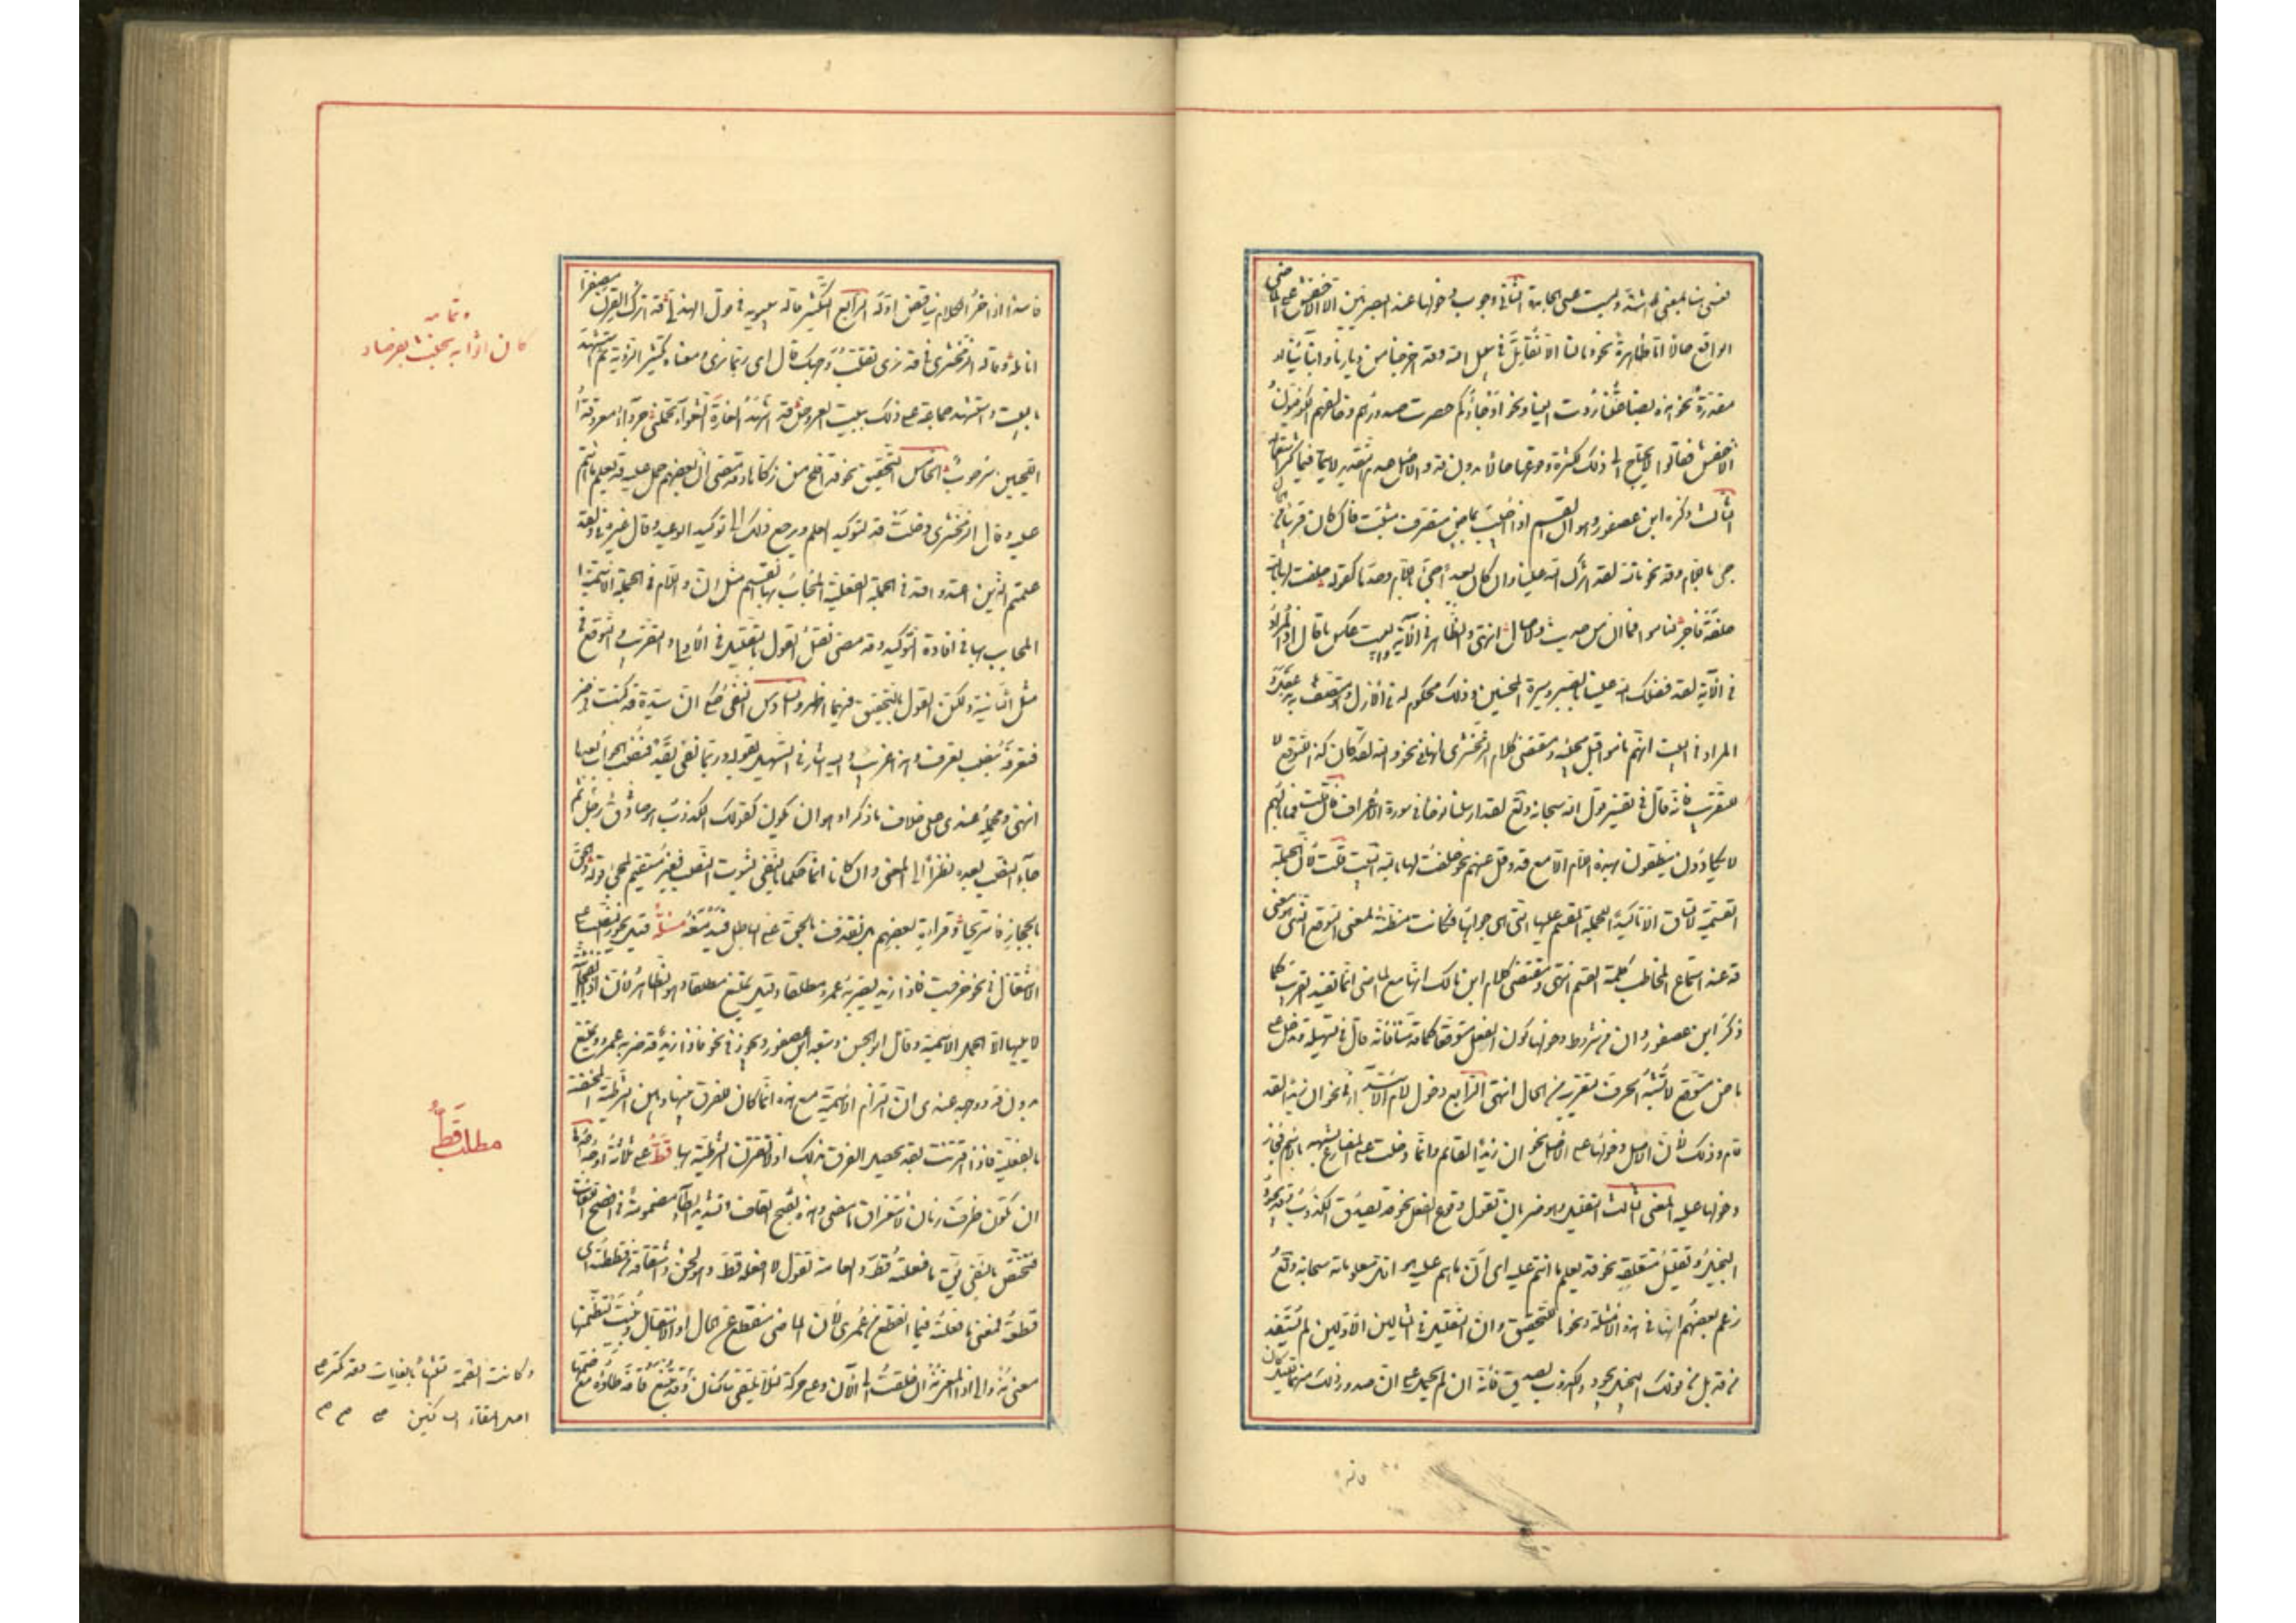 لمعنى ليست على الجامدة الثاني وجوب دخولها عند البصريين الا الاخفش على الماضي
الواقع حالا اما ظاهرة نحو وما لنا الا نقاتل في سبيل الله وقد اخرجنا من ديارنا وابنائنا او
مقدرة نحو هذه بضاعتنا ردت الينا ونحو او جاؤكم حصرت صدورهم وخالفهم الكوفيون
الاخفش فقالوا لا يحتاج الى ذلك لكثرة وقوعها حالا بدون قد والاصل عدم التقدير لا سيما فيما كثر استعماله
الثالث ذكره ابن عصفور وهو ان القسم اذا اجيب بماض متصرف مثبت فان كان قريبا من الحال
جئ باللام وقد نحو تالله لقد اثرك الله علينا وان كان بعيدا جئ باللام وحدها كقوله حلفت لها بالله
حلفة فاجر لناموا فما ان من حديث ولا صال انتهى والظاهر في الآية والبيت عكس ما قال اذ المراد
في الآية لقد فضلك الله علينا بالصبر وسيرة المحسنين وذلك محكوم له في الازل وهو متصف به مذ عقل و
المراد في البيت انهم ناموا قبل مجيئه ومقتضى كلام الزمخشري انها في نحو والله لقد كان كذا للتوقع لا
للتقريب فانه قال في تفسير قول الله سبحانه وتعالى لقد ارسلنا نوحا في سورة الاعراف فان قلت فما بالهم
لا يكادون ينطقون بهذه اللام الا مع قد وقل عنهم نحو حلفت لها بالله البيت قلت لان الجملة
القسمية لا تساق الا تاكيدا للجملة المقسم عليها التي هي جوابها فكانت مظنة لمعنى التوقع الذي هو معنى
قد عند استماع المخاطب كلمة القسم انتهى ومقتضى كلام ابن مالك انها مع الماضي انما تفيد التقريب كما
ذكر ابن عصفور وان من شروط دخولها كون الفعل متوقعا كما قدمنا فانه قال في تسهيله وتدخل على
ماض متوقع لا يشبه الحرف لتقريبه من الحال انتهى الرابع دخول لام الابتداء في نحو ان زيدا لقد
قام وذلك لان الاصل دخولها على الاسم نحو ان زيدا لقائم وانما دخلت على المضارع لشبهه بالاسم فجاز
دخولها عليه المعنى الثالث التقليل وهو ضربان تقليل وقوع الفعل نحو قد يصدق الكذوب وقد يجود
البخيل وتقليل متعلقه نحو قد يعلم ما انتم عليه اى ان ما هم عليه هو اقل معلوماته سبحانه وتعالى
زعم بعضهم انها في هذه الامثلة ونحوها للتحقيق وان التقليل في المثالين الاولين لم يستفد
من قد بل من قولك البخيل يجود والكذوب يصدق فانه ان لم يحمل على ان صدور ذلك منهما قليل كان
فاسدا اذ آخر الكلام يناقض اوله الرابع التكثير قاله سيبويه في قول الهذلي قد اترك القرن مصفرا
انامله وقاله الزمخشري في قد نرى تقلب وجهك قال اى ربما نرى ومعناه تكثير الرؤية ثم استشهد
بالبيت واستشهد جماعة على ذلك ببيت العروض قد اشهد الغارة الشعواء تحملني جرداء معروقة
اللحيين سرحوب الخامس التحقيق نحو قد افلح من زكاها وقد مضى ان بعضهم حمل عليه قد يعلم ما انتم
عليه وقال الزمخشري دخلت قد لتوكيد العلم ويرجع ذلك الى توكيد الوعيد وقال غيره في ولقد
علمتم الذين اعتدوا قد في الجملة الفعلية المجاب بها القسم مثل ان واللام في الجملة الاسمية
المجاب بها في افادة التوكيد وقد مضى نقل القول بالتقليل في الاولى والتقريب والتوقع في
مثل الثانية ولكن القول بالتحقيق فيهما اظهر والسادس النفي حكى ابن سيدة قد كنت في خير
فتعرفه بنصب تعرف وهذا غريب واليه اشار في التسهيل بقوله وربما نفى بقد فنصب الجواب بعدها
انتهى ومحمله عندى على خلاف ما ذكراه وهو ان يكون كقولك للكذوب هو رجل صادق ثم
جاء النصب بعده نظرا الى المعنى وان كانا انما حكما بالنفي لثبوت النصب فغير مستقيم لمجئ قوله والحق
بالحجاز فاستريحا وقراءة بعضهم بل نقذف بالحق على الباطل فيدمغه مسئلة قيل يجوز النصب على
الاشتغال في نحو خرجت فاذا زيد يضربه عمرو مطلقا وقيل يمتنع مطلقا وهو الظاهر لان اذا الفجائية
لا يليها الا الجمل الاسمية وقال ابو الحسن وتبعه ابن عصفور ويجوز في نحو فاذا زيد قد ضربه عمرو ويمتنع
بدون قد ووجهه عندى ان التزام الاسمية مع هذه انما كان للفرق بينها وبين الشرطية المختصة
بالفعلية فاذا اقترنت بقد يحصل الفرق بذلك اذ لا تقترن الشرطية بها قط على ثلاثة اوجه احدها
ان تكون ظرف زمان لاستغراق ما مضى وهذه بفتح القاف وتشديد الطاء مضمومة في افصح اللغات
فتختص بالنفي يق ما فعلته قط والعامة تقول لا افعله قط وهو لحن واشتقاقه من قططته اى
قطعته فمعنى ما فعلته قط فيما انقطع من عمرى لان الماضي منقطع عن الحال او الاستقبال وبنيت لتضمنها
معنى مذ والى اذ المعنى مذ ان خلقت الى الآن وعلى حركة لئلا يلتقى ساكنان وقد تتبع قافه طاؤه مع ضمها
وتمامه
كان اثوابه مجت بفرصاد
مطلب قط
وكانت الضمة تشبها بالغايات وقد تكسر على
اصل التقاء الساكنين